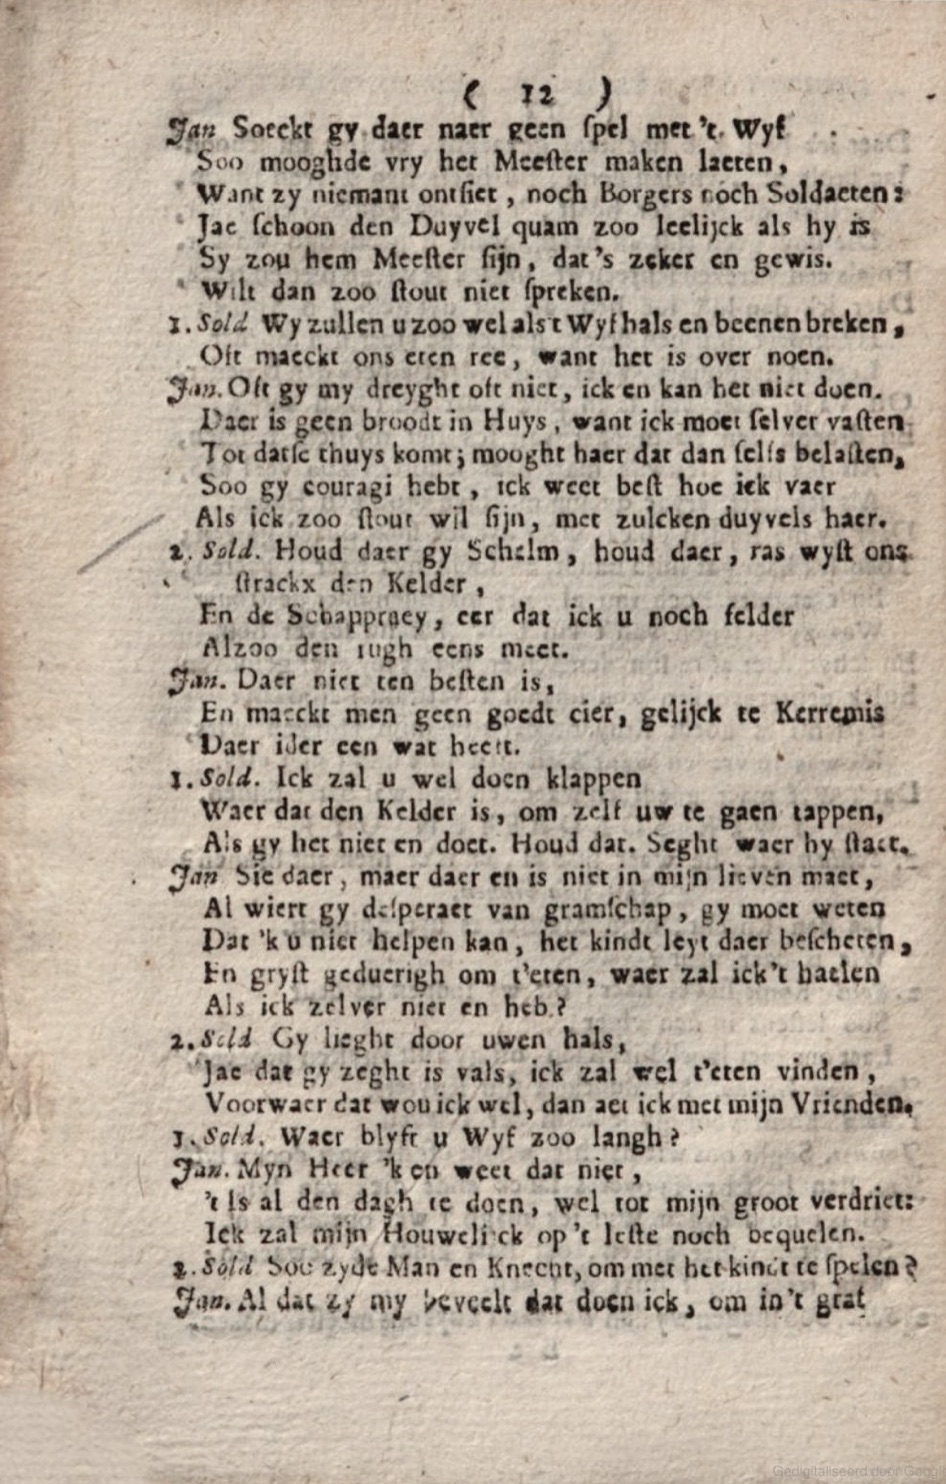 ( 12 )
Jan Soeckt gy daer naer geen ſpel met 't Wyf
Soo mooghde vry het Meeſter maken laeten,
Want zy niemant ontſiet, noch Borgers noch Soldaeten:
Jae ſchoon den Duyvel quam zoo leelijck als hy is
Sy zou hem Meeſter ſijn, dat's zeker en gewis.
Wilt dan zoo ſtout niet ſpreken.
1. Sold Wy zullen u zoo wel als t Wyf hals en beenen breken,
Oft maeckt ons eten ree, want het is over noen.
Jan. Oft gy my dreyght oft niet, ick en kan het niet doen.
Daer is geen broodt in Huys, want ick moet ſelver vaſten
Tot datſe thuys komt; mooght haer dat dan ſelfs belaſten,
Soo gy couragi hebt, ick weet beſt hoe ick vaer
Als ick zoo ſtout wil ſijn, met zulcken duyvels haer.
2. Sold. Houd daer gy Schelm, houd daer, ras wyſt ons
ſtrackx den Kelder,
En de Schappraey, eer dat ick u noch felder
Alzoo den rugh eens meet.
Jan. Daer niet ten beſten is,
En maeckt men geen goedt cier, gelijck te Kerremis
Daer ider een wat heeft.
1. Sold. Ick zal u wel doen klappen
Waer dat den Kelder is, om zelf uw te gaen tappen,
Als gy het niet en doet. Houd dat. Seght waer hy ſtaet.
Jan Sie daer, maer daer en is niet in mijn lieven maet,
Al wiert gy deſperaet van gramſchap, gy moet weten
Dat 'k u niet helpen kan, het kindt leyt daer beſcheten,
En gryſt geduerigh om t'eten, waer zal ick't haelen
Als ick zelver niet en heb?
2. Sold Gy lieght door uwen hals,
Jae dat gy zeght is vals, ick zal wel t'eten vinden,
Voorwaer dat wou ick wel, dan aet ick met mijn Vrienden.
1. Sold. Waer blyft u Wyf zoo langh?
Jan. Myn Heer 'k en weet dat niet,
't Is al den dagh te doen, wel tot mijn groot verdriet:
Ick zal mijn Houwelijck op't leſte noch bequelen.
2. Sold Soo zyde Man en Knecht, om met het kindt te ſpelen?
Jan. Al dat zy my beveelt dat doen ick, om in't graf
Gedigitaliseerd door